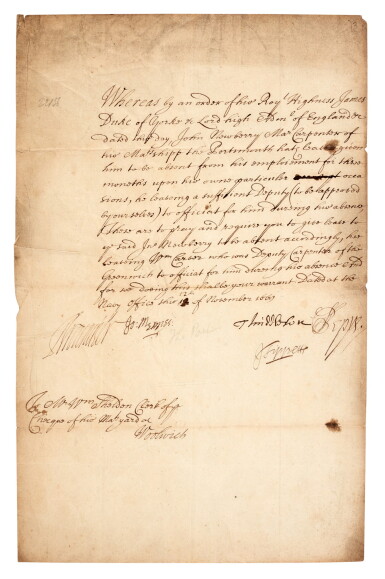 Whereas by an order of his Roy.ll Highness James
Duke of Yorke & Lord high Adm.ll of England &c
dated this day, John Newberry Ma.r Carpenter of
his Ma.ts shipp the Portsmouth hath leave given
him to be absent from his employment for three
moneths upon his owne particular occa
sions, he leaving a sufficient Deputy (to be approved
by ourselves) to officiat for him during his absence
These are to pray and require you to give leave to
y.e said Jo: Newberry to be absent accordingly, he
leaving W.m Carter who was Deputy Carpenter of the
to officiat for him during his absence And
for so doing this shalbe your warrant Dated at the
Navy Office this 12th of November 1667
Brouncker Jo: Mennes Tho: Middleton S Pepys.
To Mr Wm Sheldon Clerk of ye
Cheque of his Ma.ts yard at
Woolwich